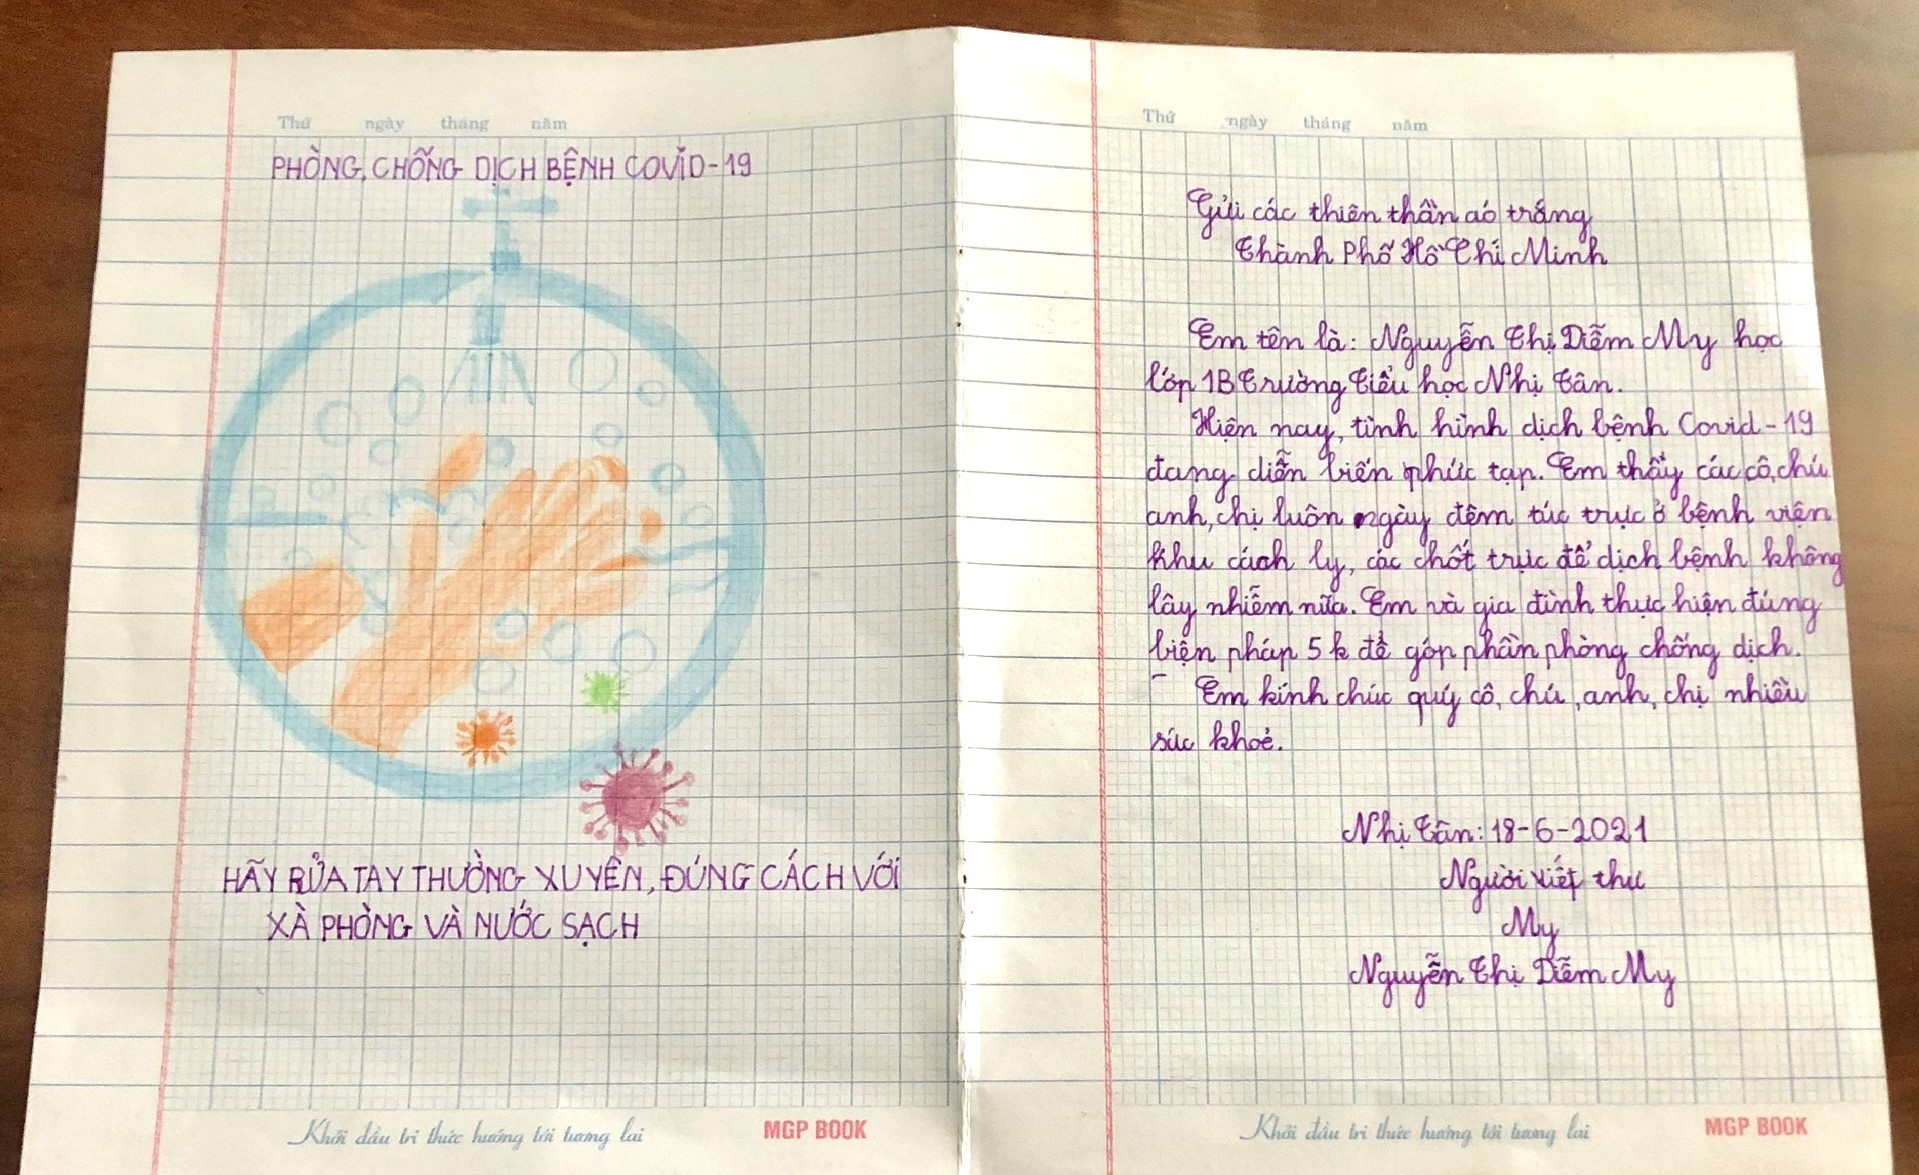 Thứ ngày tháng năm
PHÒNG, CHỐNG DỊCH BỆNH COVID-19
HÃY RỬA TAY THƯỜNG XUYÊN, ĐÚNG CÁCH VỚI
XÀ PHÒNG VÀ NƯỚC SẠCH
Khởi đầu tri thức hướng tới tương lai MGP BOOK
Thứ ngày tháng năm
Gửi các thiên thần áo trắng
Thành Phố Hồ Chí Minh
Em tên là: Nguyễn Thị Diễm My học
lớp 1B Trường Tiểu học Nhị Tân.
Hiện nay, tình hình dịch bệnh Covid-19
đang diễn biến phức tạp. Em thấy các cô, chú
anh, chị luôn ngày đêm túc trực ở bệnh viện
khu cách ly, các chốt trực để dịch bệnh không
lây nhiễm nữa. Em và gia đình thực hiện đúng
biện pháp 5k để góp phần phòng chống dịch.
Em kính chúc quý cô, chú, anh, chị nhiều
sức khoẻ.
Nhị Tân: 18-6-2021
Người viết thư
My
Nguyễn Thị Diễm My
Khởi đầu tri thức hướng tới tương lai MGP BOOK